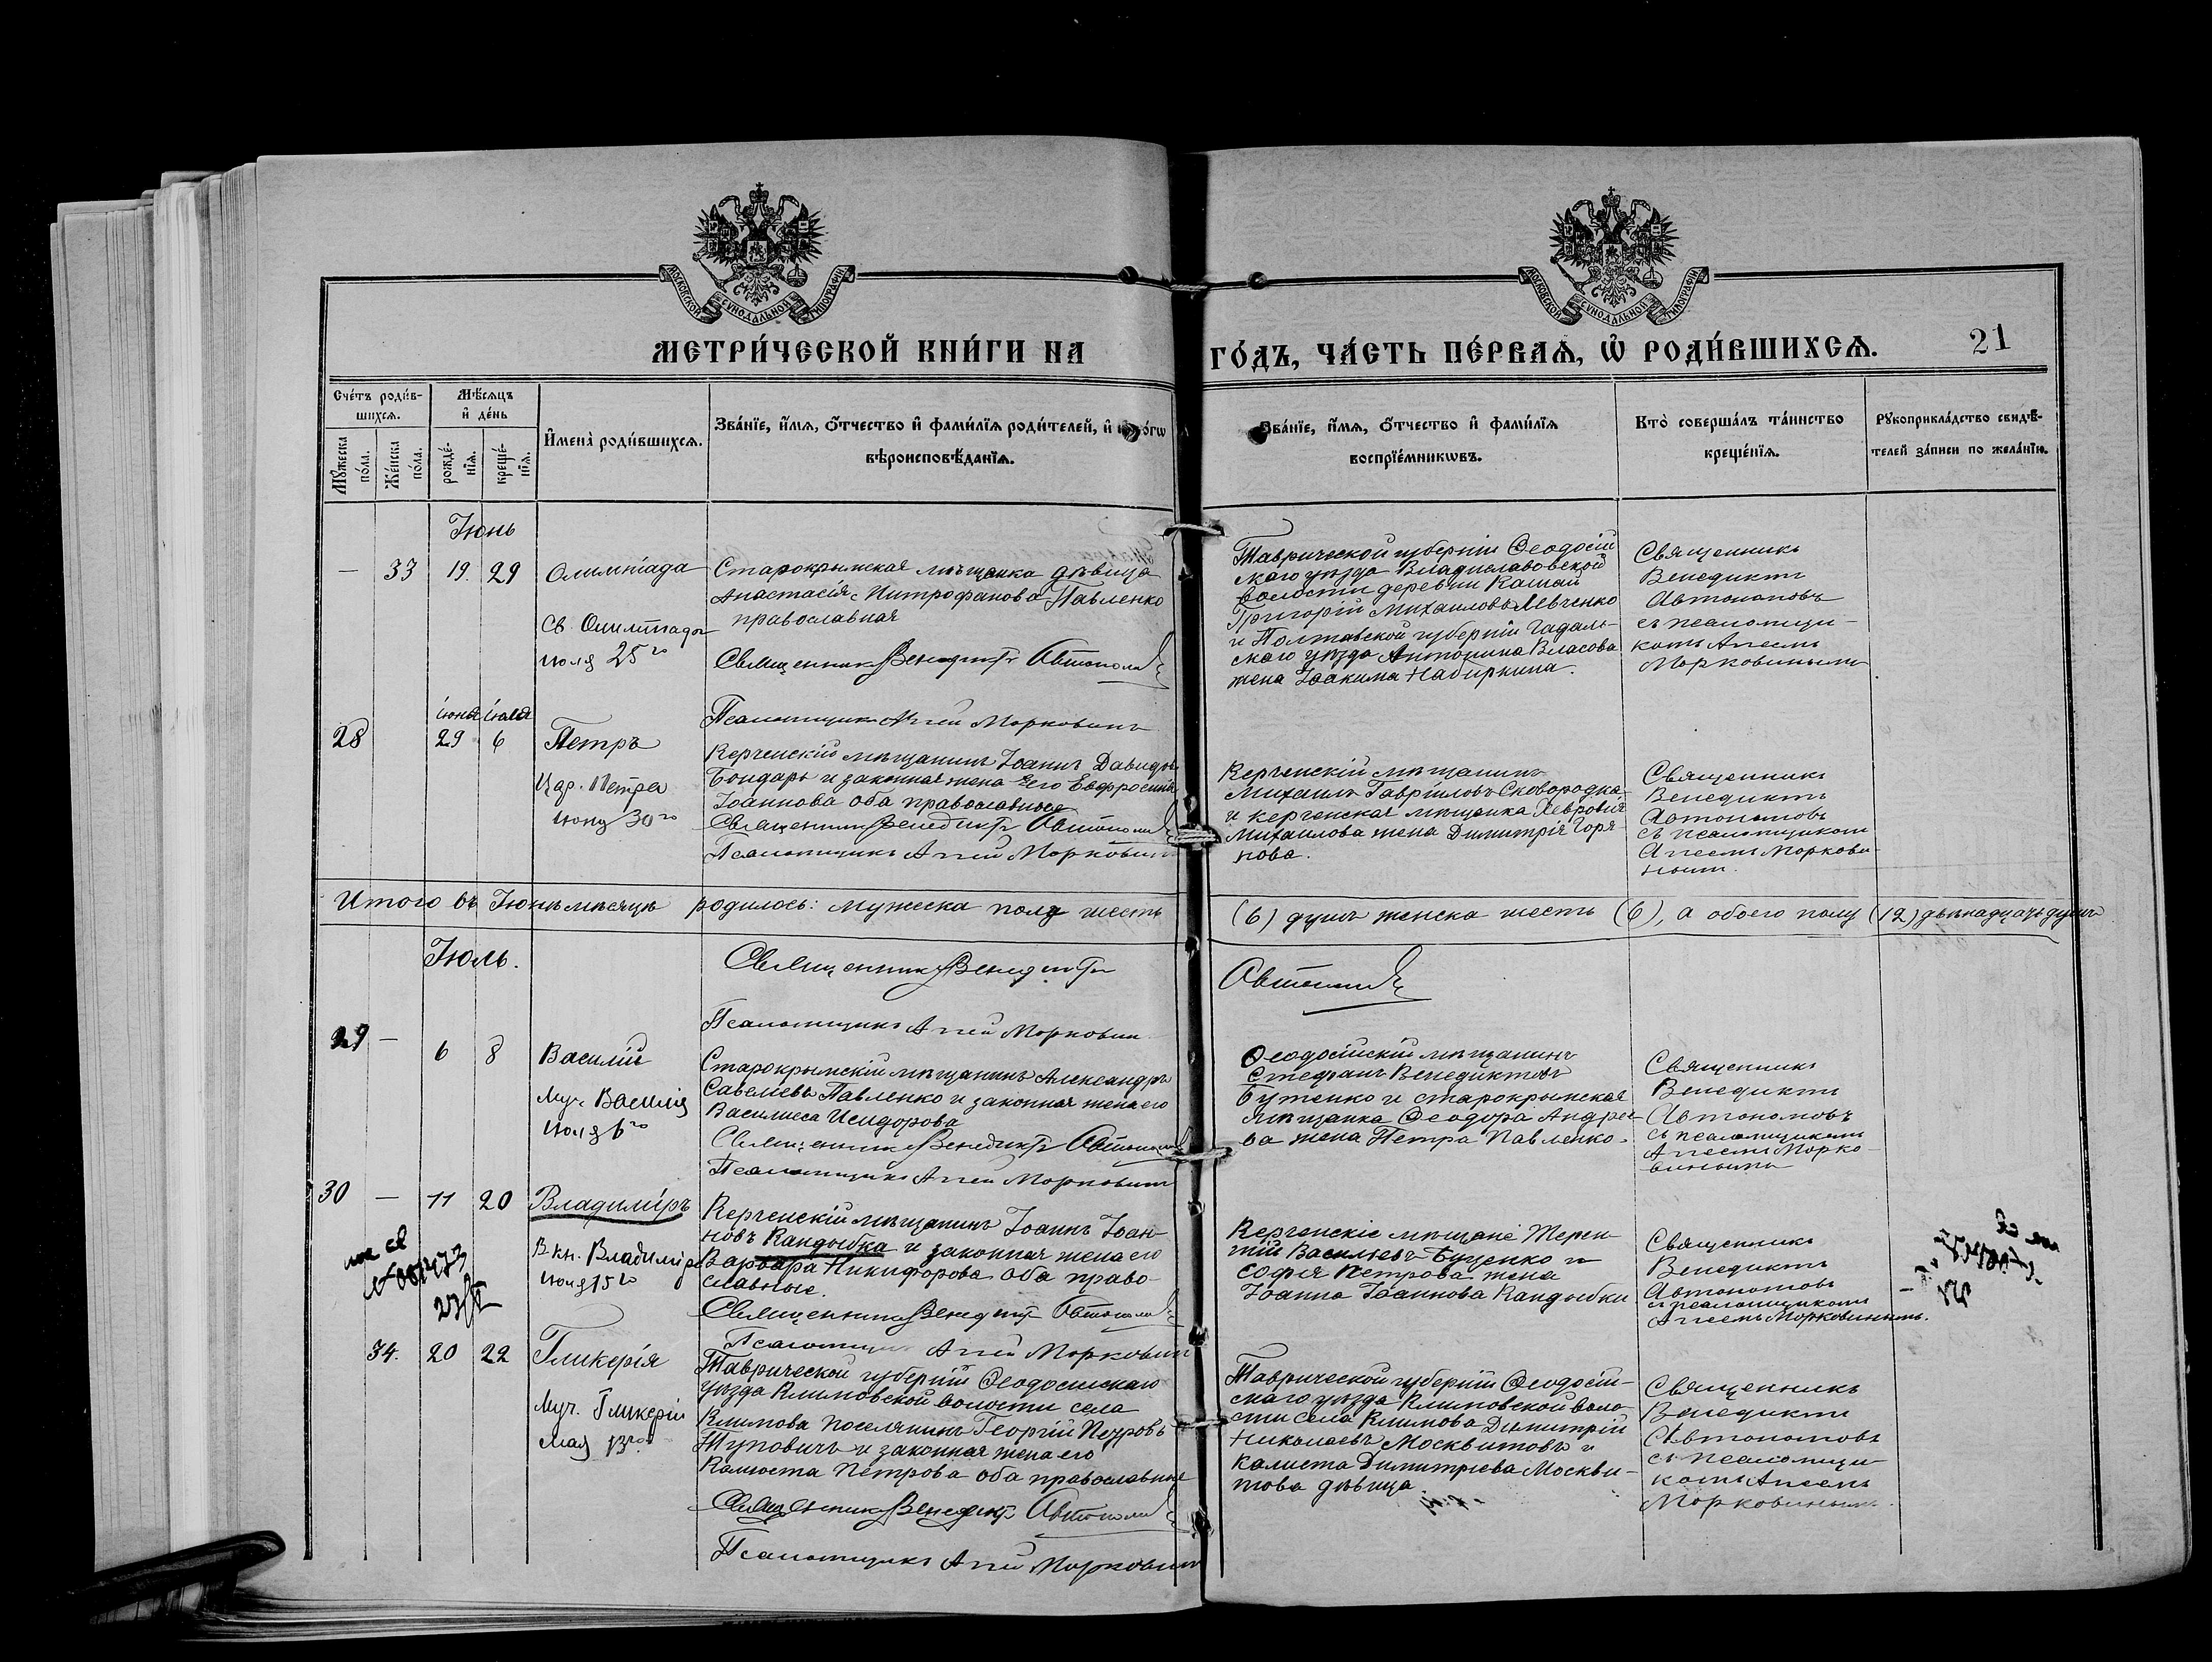 МОСКОВСКОЙ СѴНОДАЛЬНОЙ ТИПОГРАФІИ
МОСКОВСКОЙ СѴНОДАЛЬНОЙ ТИПОГРАФІИ
МЕТРИ́ЧЕСКОЙ КНИ́ГИ НА
ГО́ДЪ, ЧА́СТЬ ПЕ́РВАѦ, Ѡ҆ РОДИ́ВШИХСѦ.
21
Сче́тъ роди́в-
шихсѧ.
Мѣ́сѧцъ
и҆ де́нь
Мꙋ́жеска
по́ла.
Же́нска
по́ла.
рожде́-
нїѧ.
креще́-
нїѧ.
И҆мена̀ роди́вшихсѧ.
Зва́нїе, и҆́мѧ, ѻ҆́тчество и҆ фами́лїѧ роди́телей, и҆
вѣроисповѣ́данїѧ.
Зва́нїе, и҆́мѧ, ѻ҆́тчество и҆ фами́лїѧ
воспрїе́мникѡвъ.
Кто̀ соверша́лъ та́инство
креще́нїѧ.
Рꙋкоприкла́дство свидѣ́-
телей за́писи по жела́нїю.
Іюнь
— 33 19. 29 Олимпіада
Св. Олимпіады
июля 25го
Старокрымская мѣщанка дѣвица
Анастасія Митрофанова Павленко
православная
Священникъ Венедиктъ Автономовъ
Псаломщикъ Аггей Морковинъ
Таврической губерніи Ѳеодосій
скаго уѣзда Владиславовской
волости деревни
Григорій Михаиловъ Левченко
и Полтавской губерніи Гадяч-
скаго уѣзда Антонина Власова
жена Іоакима
Священникъ
Венедиктъ
Автономовъ
съ псаломщи-
комъ Аггеемъ
Морковинымъ
июня июля
28 29 6 Петръ
Цар. Петра
июня 30го
Керченскій мѣщанинъ Іоаннъ Давидовъ
Бондарь и законная жена его Евфросинія
Іоаннова оба православные
Священникъ Венедиктъ Автономовъ
Псаломщикъ Аггей Морковинъ
Керченскій мѣщанинъ
Михаилъ Гавріиловъ Сковородка
и керченская мѣщанка Февронія
Михаилова жена Димитрія Горя-
нова.
Священникъ
Венедиктъ
Автономовъ
съ псаломщикомъ
Аггеемъ Моркови-
нымъ.
Итого въ Іюнѣ мѣсяцѣ родилось: мужеска пола шесть
(6) душъ женска шесть (6), а обоего полу (12) двѣнадцать душъ
Іюль.
Священникъ Венедиктъ
Автономовъ
Псаломщикъ Аггей Морковин
29 — 6 8 Василій
Муч. Василія
июля 6го
Старокрымскій мѣщанинъ Александръ
Савельевъ Павленко и законная жена его
Василиса Исидорова
Священникъ Венедиктъ Автономовъ
Псаломщикъ Аггей Морковинъ
Ѳеодосійскій мѣщанинъ
Стефанъ Венедиктовъ
Бутенко и старокрымская
мѣщанка Ѳеодора Андрее-
ва жена Петра Павленко.
Священникъ
Венедиктъ
Автономовъ
съ псаломщикомъ
Аггеемъ Морко-
винымъ
30 — 11 20 Владиміръ
В кн. Владиміра
июля 15го
Керченскій мѣщанинъ Іоаннъ Іоан-
новъ Кандыбка и законная жена его
Варвара Никифорова оба право-
славные.
Священникъ Венедиктъ Автономовъ
Псаломщикъ Аггей Морковин
Керченскіе мѣщане Терен-
тій Васильевъ Буценко и
Софія Петрова жена
Іоанна Іоаннова Кандыбки
Священникъ
Венедиктъ
Автономовъ
съ псаломщикомъ
Аггеемъ Морковинымъ.
34. 20 22 Гликерія
Муч. Гликеріи
мая 13го
Таврической губерніи Ѳеодосійскаго
уѣзда Климовской волости села
Климова поселянинъ Георгій Петровъ
Туповичъ и законная жена его
Калиста Петрова оба православные
Священникъ Венедиктъ Автономовъ
Псаломщикъ Аггей Морковин
Таврической губерніи Ѳеодосій-
скаго уѣзда Климовской воло-
сти села Климова Димитрій
Николаевъ Москвитовъ и
Калиста Димитріева Москви-
това дѣвица
Священникъ
Венедиктъ
Автономовъ
съ псаломщи-
комъ Аггеемъ
Морковинымъ.